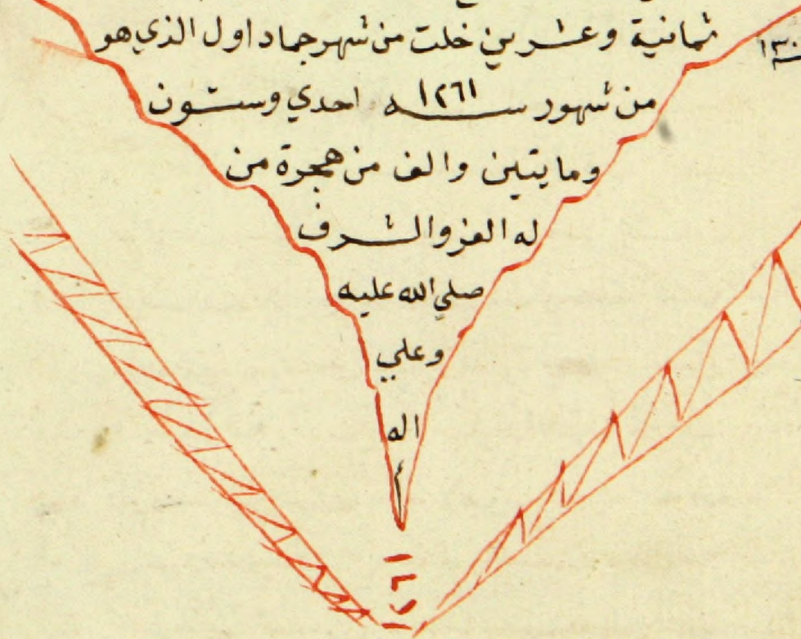 ثمانية وعشرين خلت من شهر جماد اول الذي هو
من شهور سنه ١٢٦١ احدي وستون
ومايتين والف من هجرة من
له العز والشرف
صلي الله عليه
وعلي
اله
م